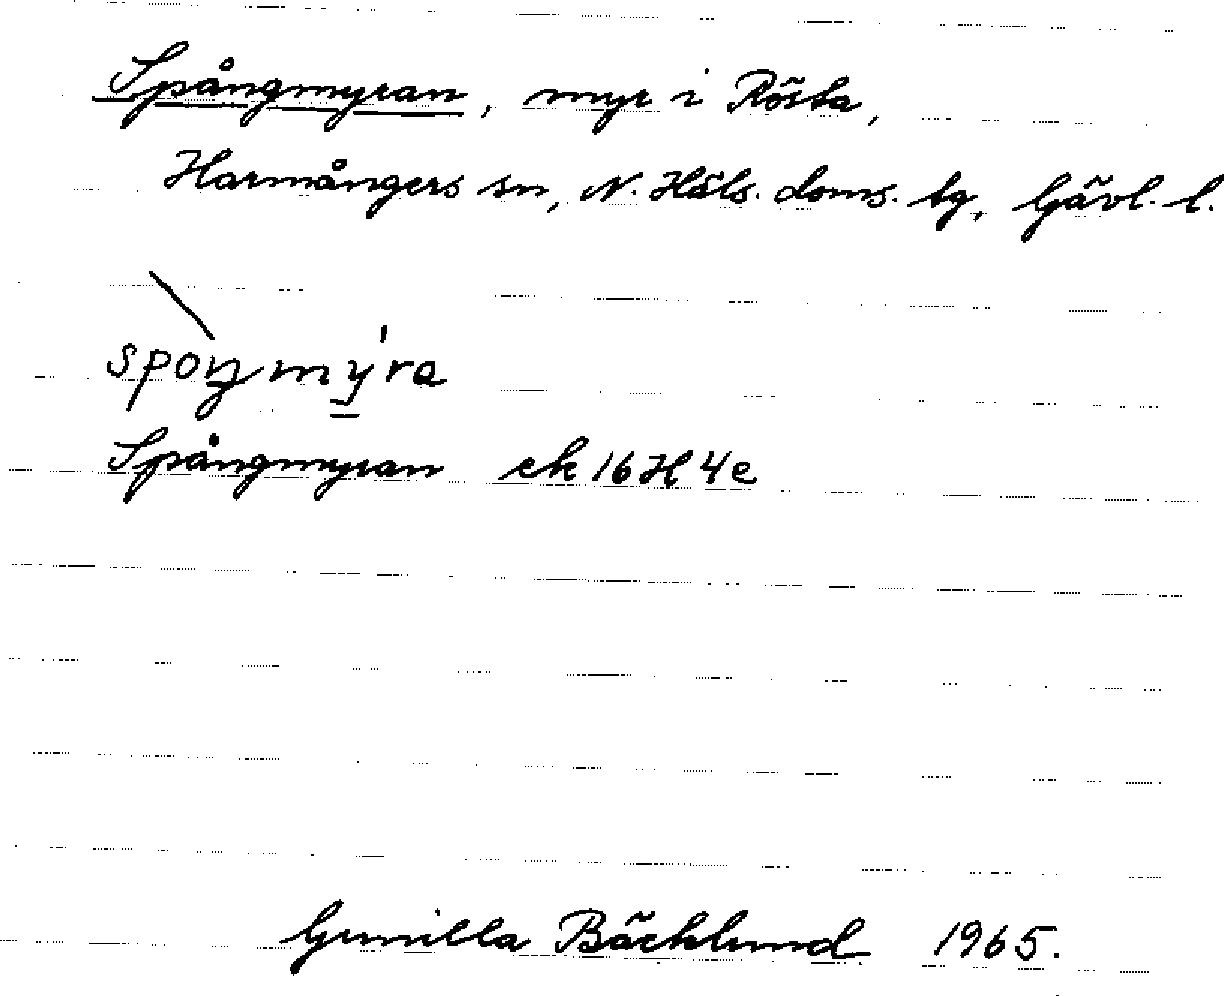 Spångmyran, myr i Rösta,
Harmångers sn, N. Häls. doms. tg, Gävl. l.
spoŋmȳ̱́ra
Spångmyran ek 16H 4e
Gunilla Bäcklund 1965.